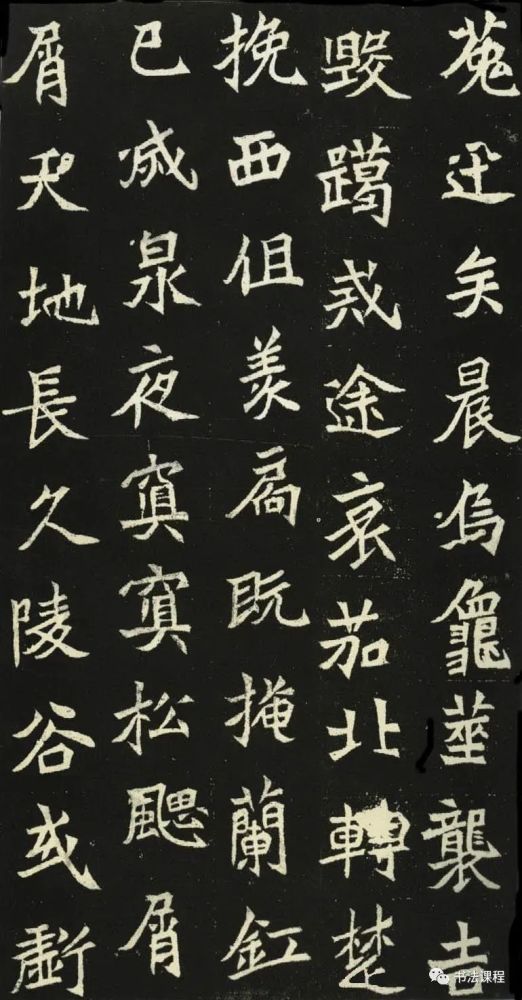 菟迅矣晨烏龜筮襲吉
戒途哀笳北轉楚
挽西徂羨扃既掩蘭釭
已滅泉夜冥冥松颸屑
屑天地長久陵谷或虧
书法课程